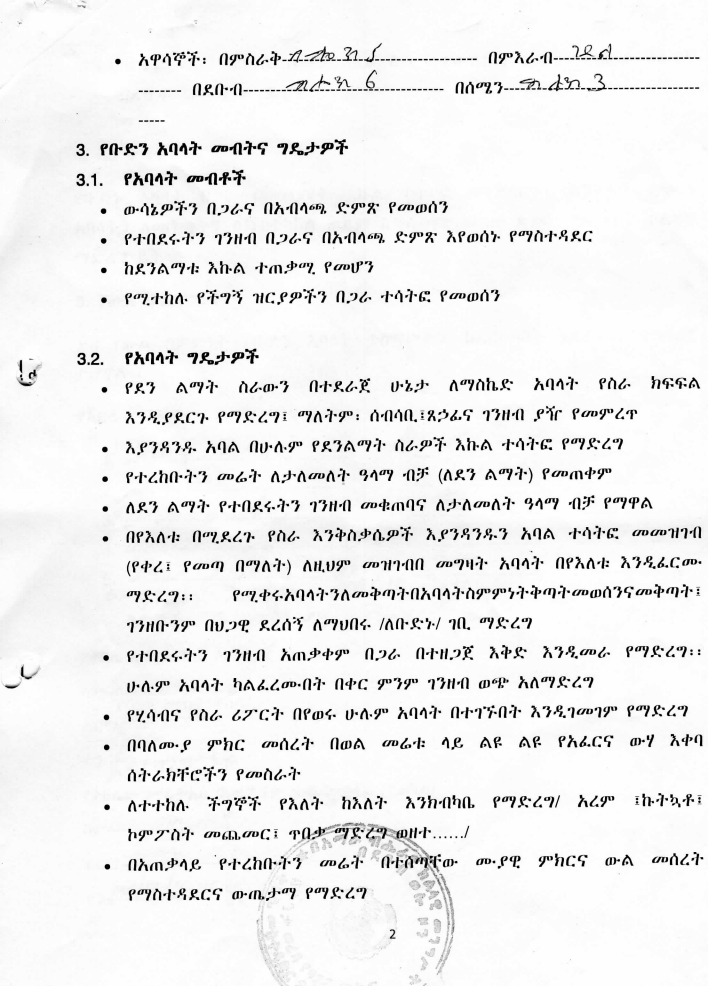 • አዋሳኞች፡ በምስራቅ በምእራብ
በደቡብ 6 በሰሜን 3
3. የቡድን አባላት መብትና ግዴታዎች
3.1. የአባላት መብቶች
• ውሳኔዎችን በጋራና በአብላጫ ድምጽ የመወሰን
• የተበደሩትን ገንዘብ በጋራና በአብላጫ ድምጽ እየወሰኑ የማስተዳደር
• ከደንልማቱ እኩል ተጠቃሚ የመሆን
• የሚተከሉ የችግኝ ዝርያዎችን በጋራ ተሳትፎ የመወሰን
3.2. የአባላት ግዴታዎች
• የደን ልማት ስራውን በተደራጀ ሁኔታ ለማስኬድ አባላት የስራ ክፍፍል
እንዲያደርጉ የማድረግ፤ ማለትም፡ ሰብሳቢ፤ጸኃፊና ገንዘብ ያዥ የመምረጥ
• እያንዳንዱ አባል በሁሉም የደንልማት ስራዎች እኩል ተሳትፎ የማድረግ
• የተረከቡትን መሬት ለታለመለት ዓላማ ብቻ (ለደን ልማት) የመጠቀም
• ለደን ልማት የተበደሩትን ገንዘብ መቁጠባና ለታለመለት ዓላማ ብቻ የማዋል
• በየእለቱ በሚደረጉ የስራ እንቅስቃሴዎች እያንዳንዱን አባል ተሳትፎ መመዝገብ
(የቀረ፤ የመጣ በማለት) ለዚህም መዝገብበ መግዛት አባላት በየእለቱ እንዲፈርሙ
ማድረግ፡፡ የሚቀሩአባላትንለመቅጣትበአባላትስምምነትቅጣትመወሰንናመቅጣት፤
ገንዘቡንም በህጋዊ ደረሰኝ ለማህበሩ /ለቡድኑ/ ገቢ ማድረግ
• የተበደሩትን ገንዘብ አጠቃቀም በጋራ በተዘጋጀ እቅድ እንዲመራ የማድረግ፡፡
ሁሉም አባላት ካልፈረሙበት በቀር ምንም ገንዘብ ወጭ አለማድረግ
• የሂሳብና የስራ ሪፖርት በየወሩ ሁሉም አባላት በተገኙበት እንዲገመገም የማድረግ
• በባለሙያ ምክር መሰረት በወል መሬቱ ላይ ልዩ ልዩ የአፈርና ውሃ እቀባ
ሰትራክቸሮችን የመስራት
• ለተተከሉ ችግኞች የእለት ከእለት እንክብካቤ የማድረግ/ አረም ፤ኩትኳቶ፤
ኮምፖስት መጨመር፤ ጥበቃ ማድረግ ወዘተ……/
• በአጠቃላይ የተረከቡትን መሬት በተሰጣቸው ሙያዊ ምክርና ውል መሰረት
የማስተዳደርና ውጤታማ የማድረግ
2